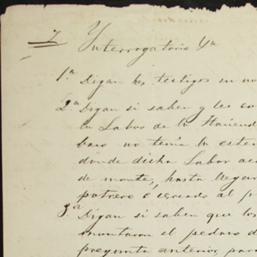 7 Interrogatorio Yª
1ª Digan los testigos en no
2ª Digan si saben y les co
la Labor de la Haciend
baro no tenía la esten
donde dicha Labor ac
de monte, hasta llegar
potrero ó cercado al p
3ª Digan si saben que los
montaron el pedazo de
pregunta anterior, para